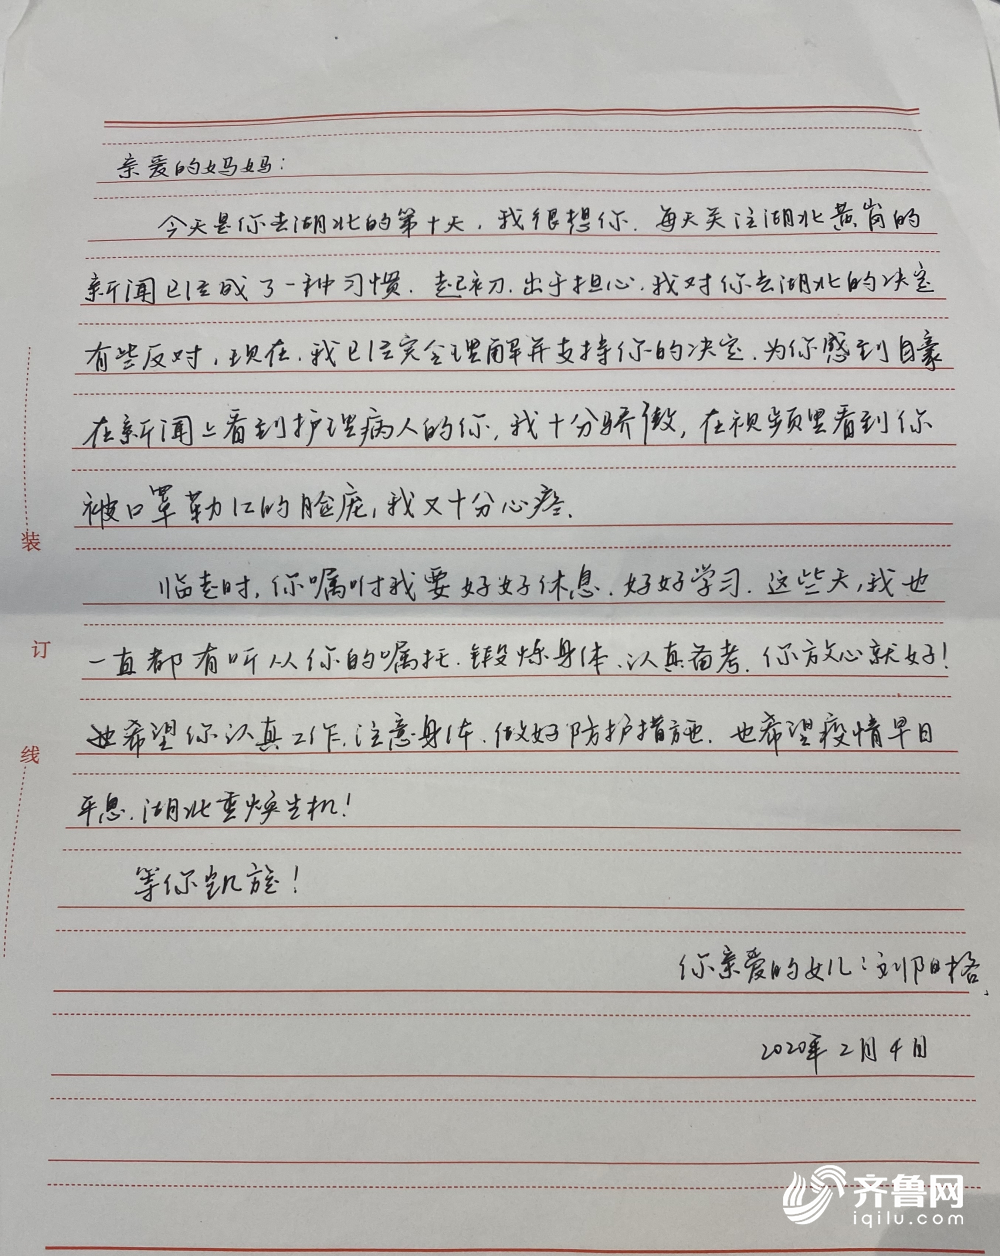 亲爱的妈妈：
今天是你去湖北的第十天，我很想你．每天关注湖北黄岗的
新闻已经成了一种习惯．起初．出于担心．我对你去湖北的决定
有些反对，现在．我已经完全理解并支持你的决定．为你感到自豪
在新闻上看到护理病人的你，我十分骄傲，在视频里看到你
被口罩勒红的脸庞，我又十分心疼．
临走时，你嘱咐我要好好休息．好好学习．这些天，我也
一直都有听从你的嘱托．锻炼身体、认真备考．你放心就好！
也希望你认真工作．注意身体．做好防护措施．也希望疫情早日
平息．湖北重焕生机！
等你凯旋！
你亲爱的女儿：刘阳格
2020年2月4日
装
订
线
齐鲁网
iqilu.com